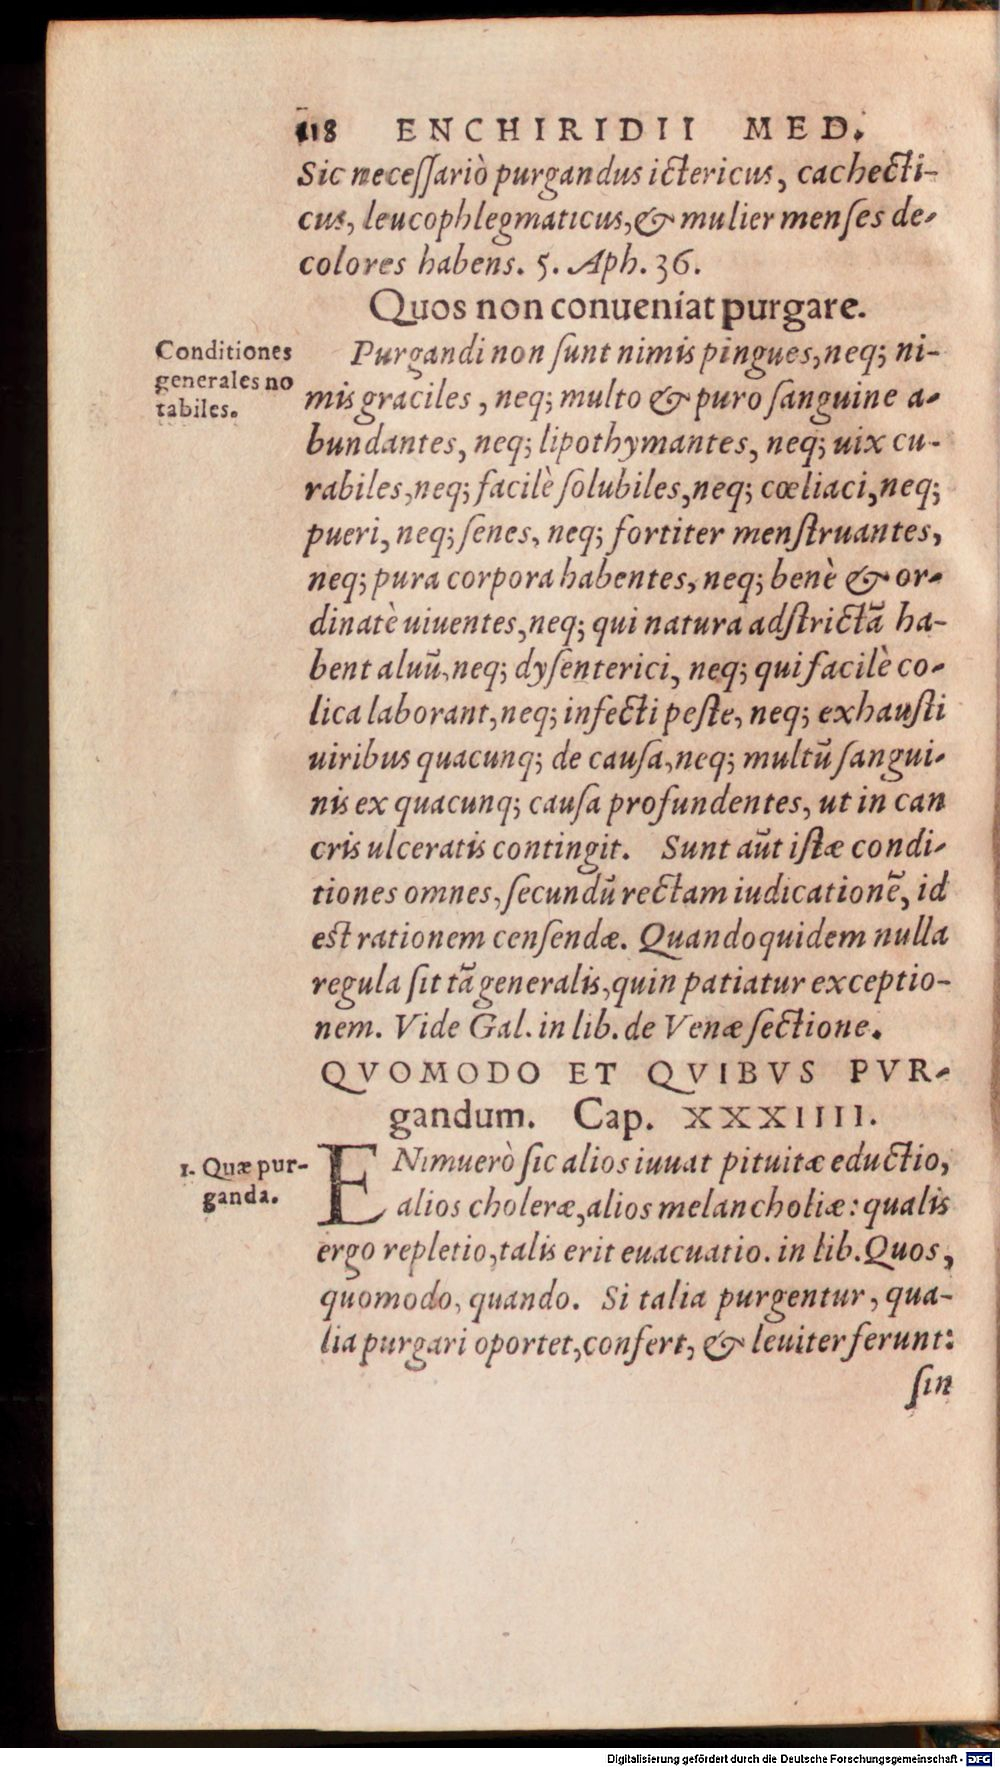 118 ENCHIRIDII MED.
Sic neceſſariò purgandus ictericus, cachecti-
cus, leucophlegmaticus, & mulier menſes de-
colores habens. 5. Aph. 36.
Quos non conueniat purgare.
Conditiones
generales no
tabiles.
Purgandi non ſunt nimis pingues, neq; ni-
mis graciles, neq; multo & puro ſanguine a-
bundantes, neq; lipothymantes, neq; uix cu-
rabiles, neq; facilè ſolubiles, neq; cœliaci, neq;
pueri, neq; ſenes, neq; fortiter menſtruantes,
neq; pura corpora habentes, neq; benè & or-
dinatè uiuentes, neq; qui natura adſtrictā ha-
bent aluū, neq; dyſenterici, neq; qui facilè co-
lica laborant, neq; infecti peſte, neq; exhauſti
uiribus quacunq; de cauſa, neq; multū ſangui-
nis ex quacunq; cauſa profundentes, ut in can
cris ulceratis contingit. Sunt aūt iſtæ condi-
tiones omnes, ſecundū rectam iudicationē, id
est rationem cenſendæ. Quandoquidem nulla
regula ſit tā generalis, quin patiatur exceptio-
nem. Vide Gal. in lib. de Venæ ſectione.
QVOMODO ET QVIBVS PVR-
gandum. Cap. XXXIIII.
1. Quæ pur-
ganda.
ENimuerò ſic alios iuuat pituitæ eductio,
alios choleræ, alios melancholiæ: qualis
ergo repletio, talis erit euacuatio. in lib. Quos,
quomodo, quando. Si talia purgentur, qua-
lia purgari oportet, confert, & leuiter ferunt:
ſin
Digitalisierung gefördert durch die Deutsche Forschungsgemeinschaft - DFG